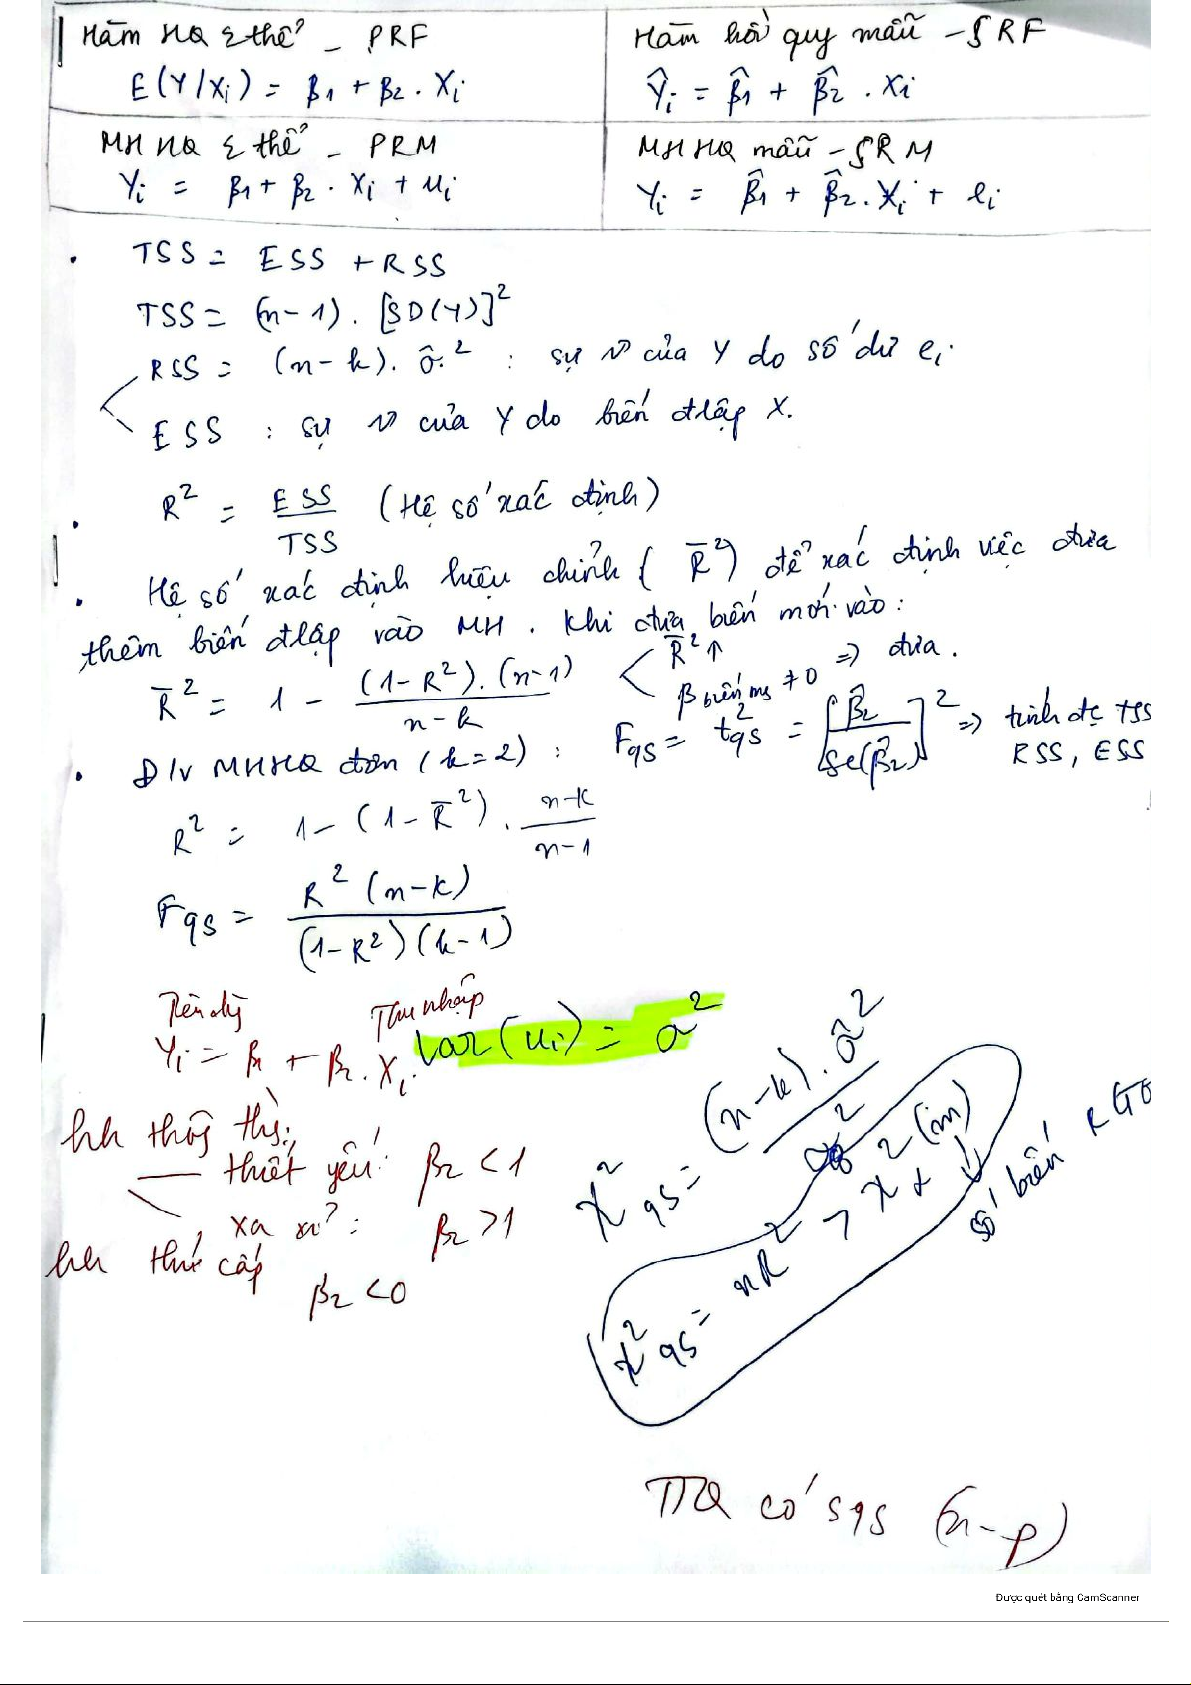 Hàm HQ Σ thể - PRF
E(Y/Xi) = β1 + β2 . Xi
Hàm hồi quy mẫu - SRF
Ŷi = β̂1 + β̂2 . Xi
MH HQ Σ thể - PRM
Yi = β1 + β2 . Xi + ui
MH HQ mẫu - SRM
Yi = β̂1 + β̂2 . Xi + ei
• TSS = ESS + RSS
TSS = (n-1) . [SD(Y)]²
RSS = (n-k) . σ̂² : sự của Y do số dư ei.
ESS : sự của Y do biến đlập X.
• R² = ESS/TSS (Hệ số xác định)
• Hệ số xác định hiệu chỉnh (R̄²) để xác định việc đưa
thêm biến đlập vào MH. Khi đưa biến mới vào:
R̄² = 1 - (1-R²).(n-1)/n-k
R̄² ↑
β biến ms ≠ 0 => đưa.
• Đ/v MHHQ đơn (k=2) : Fqs = t²qs = [β̂2/Se(β̂2)]² => tính đc TSS
RSS, ESS
R² = 1 - (1-R̄²) . n-k/n-1
Fqs = R²(n-k)/(1-R²)(k-1)
Thu nhập
Yi = β1 + β2 . Xi
Var(ui) = σ²
hh thông thg:
thiết yếu: β2 < 1
xa xỉ: β2 > 1
hh thứ cấp
β2 < 0
χ²qs = (n-k) . σ̂²/σ0²
χ²qs = nR² > χ²α(m)
số biến
TTQ có sqs (n-p)
Được quét bằng CamScanner